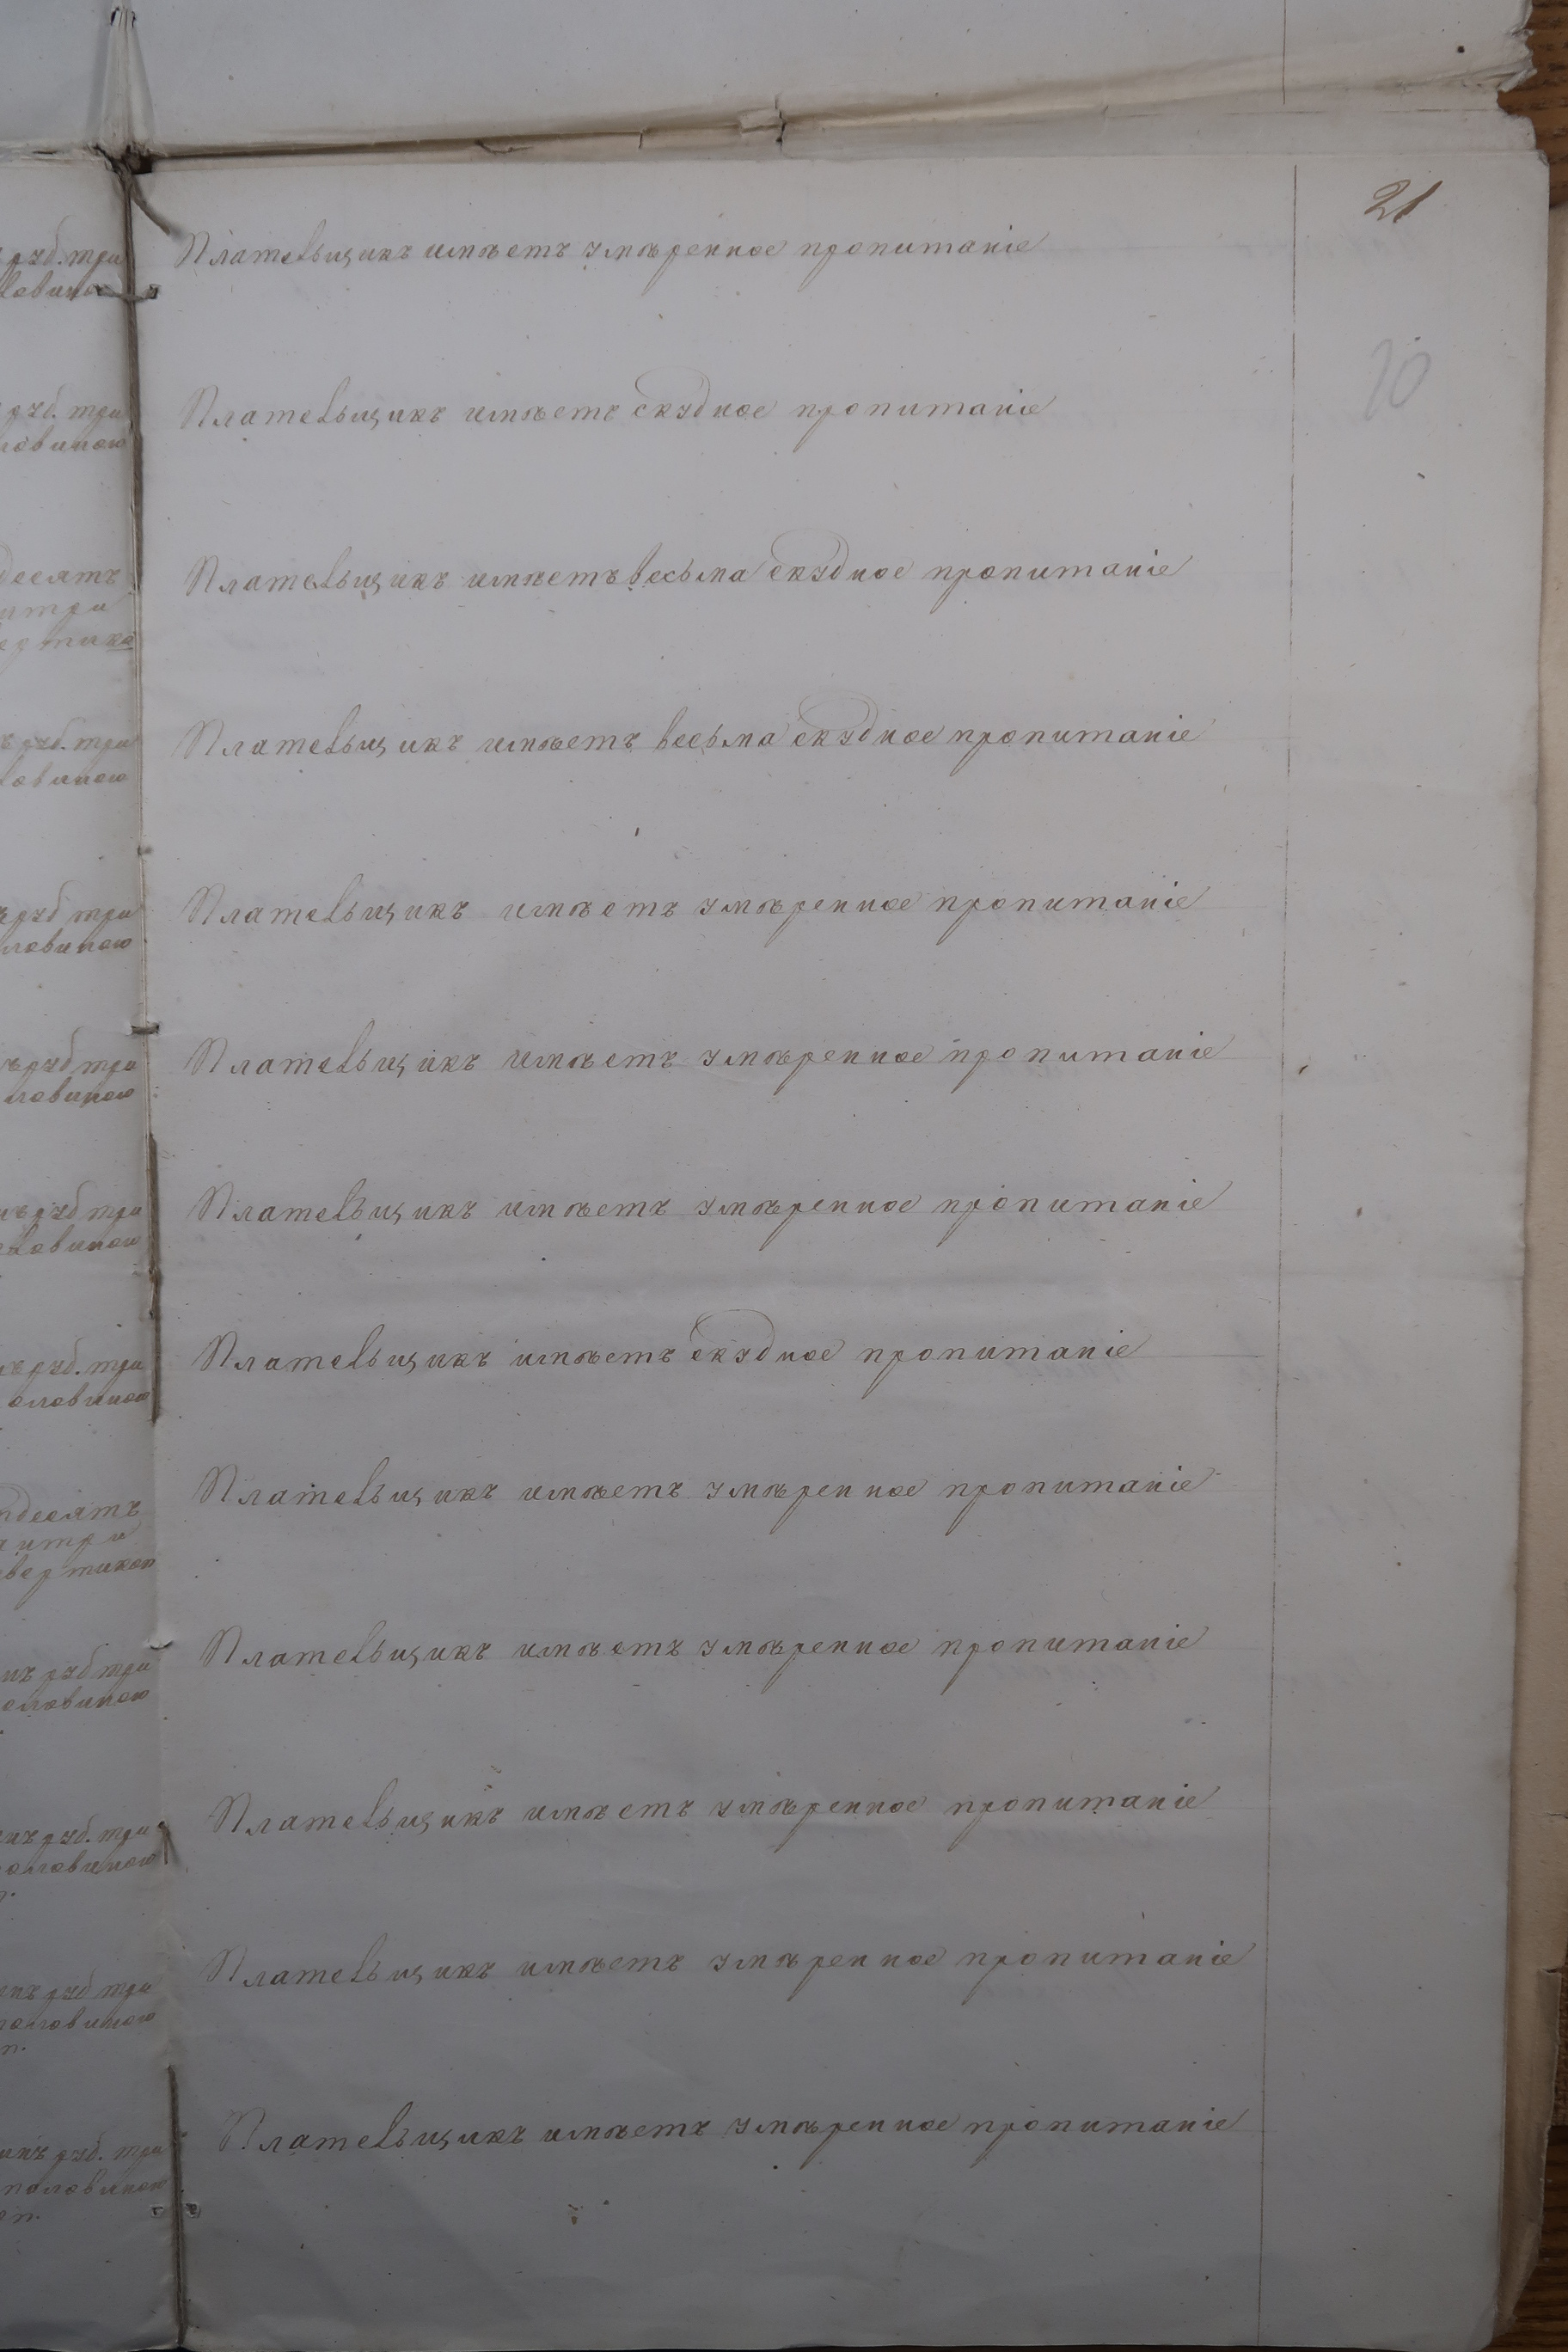 21
20
Плательщикъ имѣетъ умѣренное пропитаніе
Плательщикъ имѣетъ скудное пропитаніе
Плательщикъ имѣетъ весьма скудное пропитаніе
Плательщикъ имѣетъ весьма скудное пропитаніе
Плательщикъ имѣетъ умѣренное пропитаніе
Плательщикъ имѣетъ умѣренное пропитаніе
Плательщикъ имѣетъ умѣренное пропитаніе
Плательщикъ имѣетъ скудное пропитаніе
Плательщикъ имѣетъ умѣренное пропитаніе
Плательщикъ имѣетъ умѣренное пропитаніе
Плательщикъ имѣетъ умѣренное пропитаніе
Плательщикъ имѣетъ умѣренное пропитаніе
Плательщикъ имѣетъ умѣренное пропитаніе